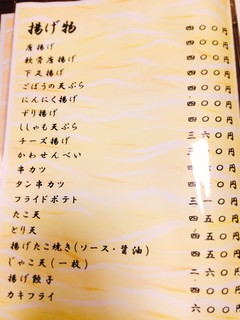 揚げ物
唐揚げ 四〇〇円
軟骨唐揚げ 四〇〇円
下足揚げ 四〇〇円
ごぼうの天ぷら 四〇〇円
にんにく揚げ 四〇〇円
ずり揚げ 四〇〇円
ししゃも天ぷら 四〇〇円
チーズ揚げ 三六〇円
かわせんべい
串カツ
タン串カツ
フライドポテト 三一〇円
たこ天 四五〇円
とり天 四五〇円
揚げたこ焼き(ソース・醤油) 四五〇円
じゃこ天(一枚) 二六〇円
揚げ餃子 四〇〇円
カキフライ 六〇〇円